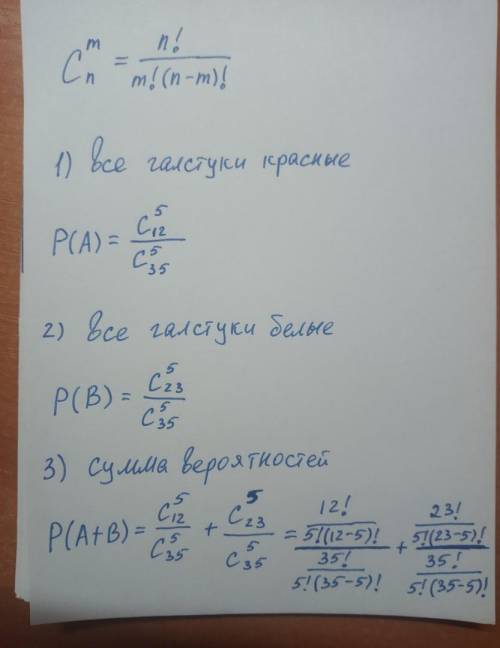 C_n^m = n! / m!(n-m)!
1) все галстуки красные
P(A) = C_12^5 / C_35^5
2) все галстуки белые
P(B) = C_23^5 / C_35^5
3) сумма вероятностей
P(A+B) = C_12^5 / C_35^5 + C_23^5 / C_35^5 = (12! / 5!(12-5)!) / (35! / 5!(35-5)!) + (23! / 5!(23-5)!) / (35! / 5!(35-5)!)